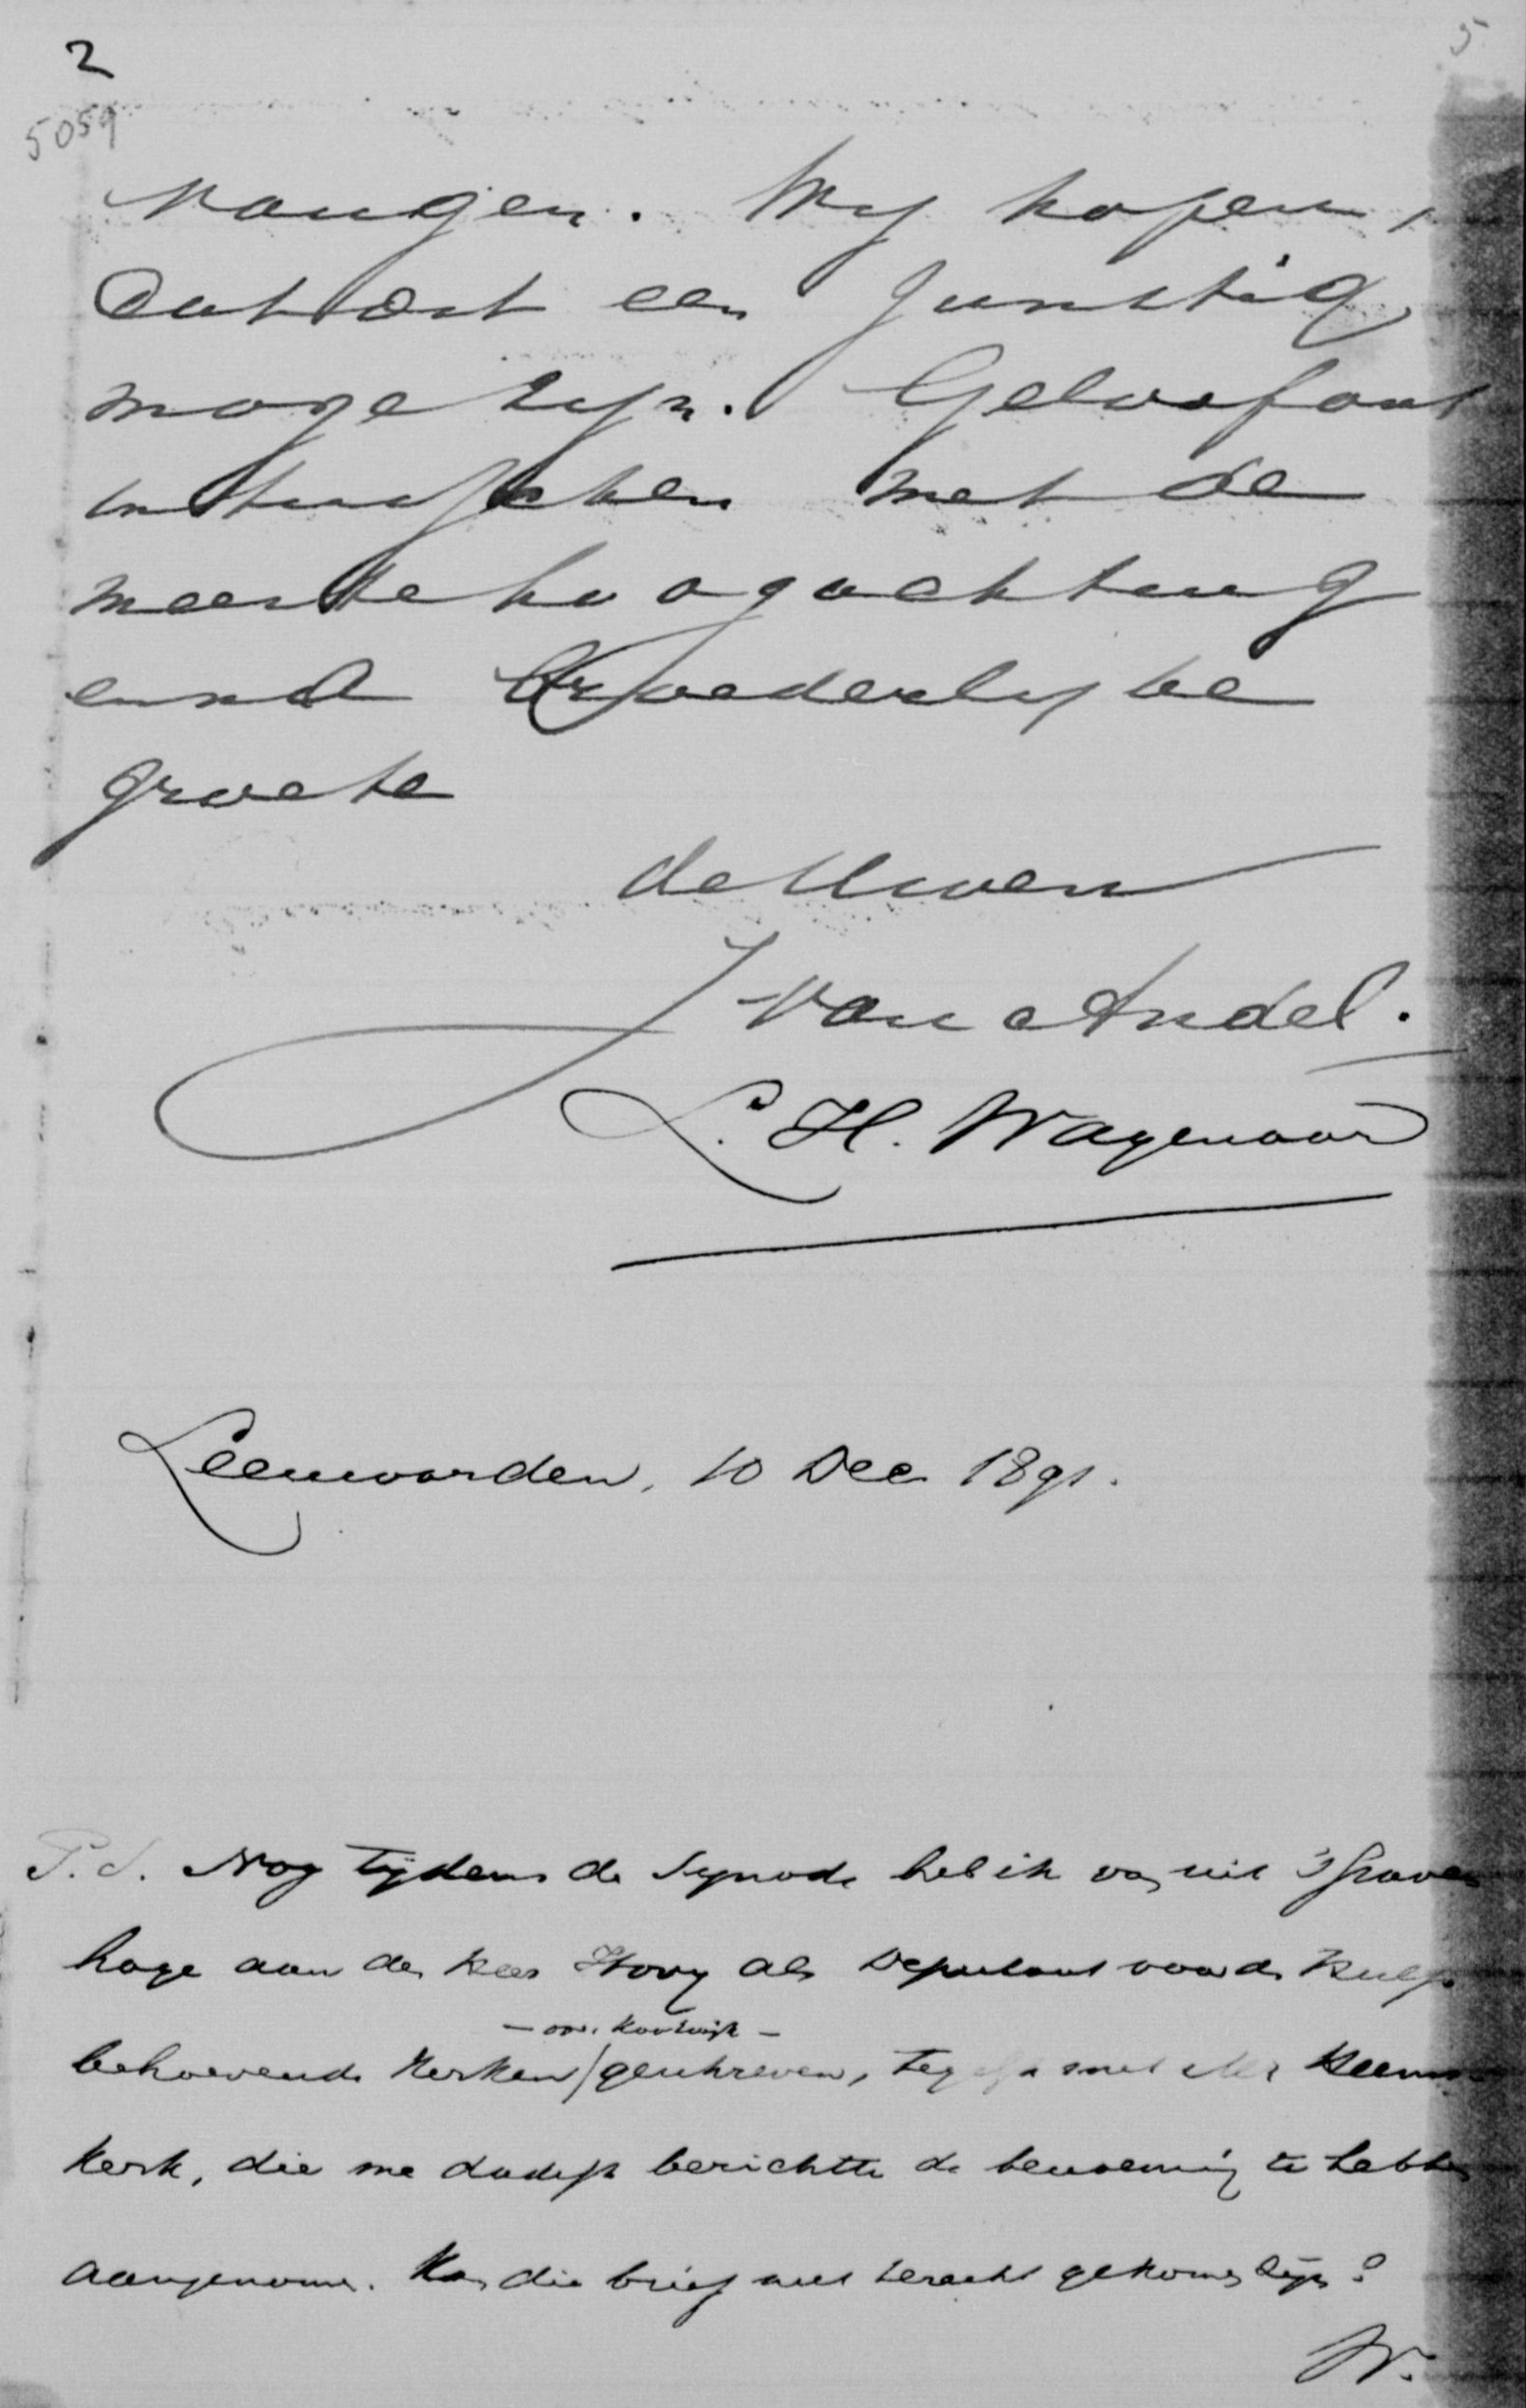 2
5
5059
vangen. Wij hopen,
dat dat een gunstig
moge zijn. Geloof ons
intusschen met de
meeste hoogachting
en broederlijke
groete
de Uwen
J van Andel.
L. H. Wagenaar
Leeuwarden, 10 Dec 1891.
P.S. Nog tijdens de Synode heb ik van uit 's Graven
hage aan den Heer Hovy als Deputaat voor de hulp
— voor Kootwijk —
behoevende Kerken geschreven, tegelijk met Mr Heems
kerk, die me dadelijk berichtte de benoeming te hebben
aangenomen. Kan die brief niet terecht gekomen zijn?
W.